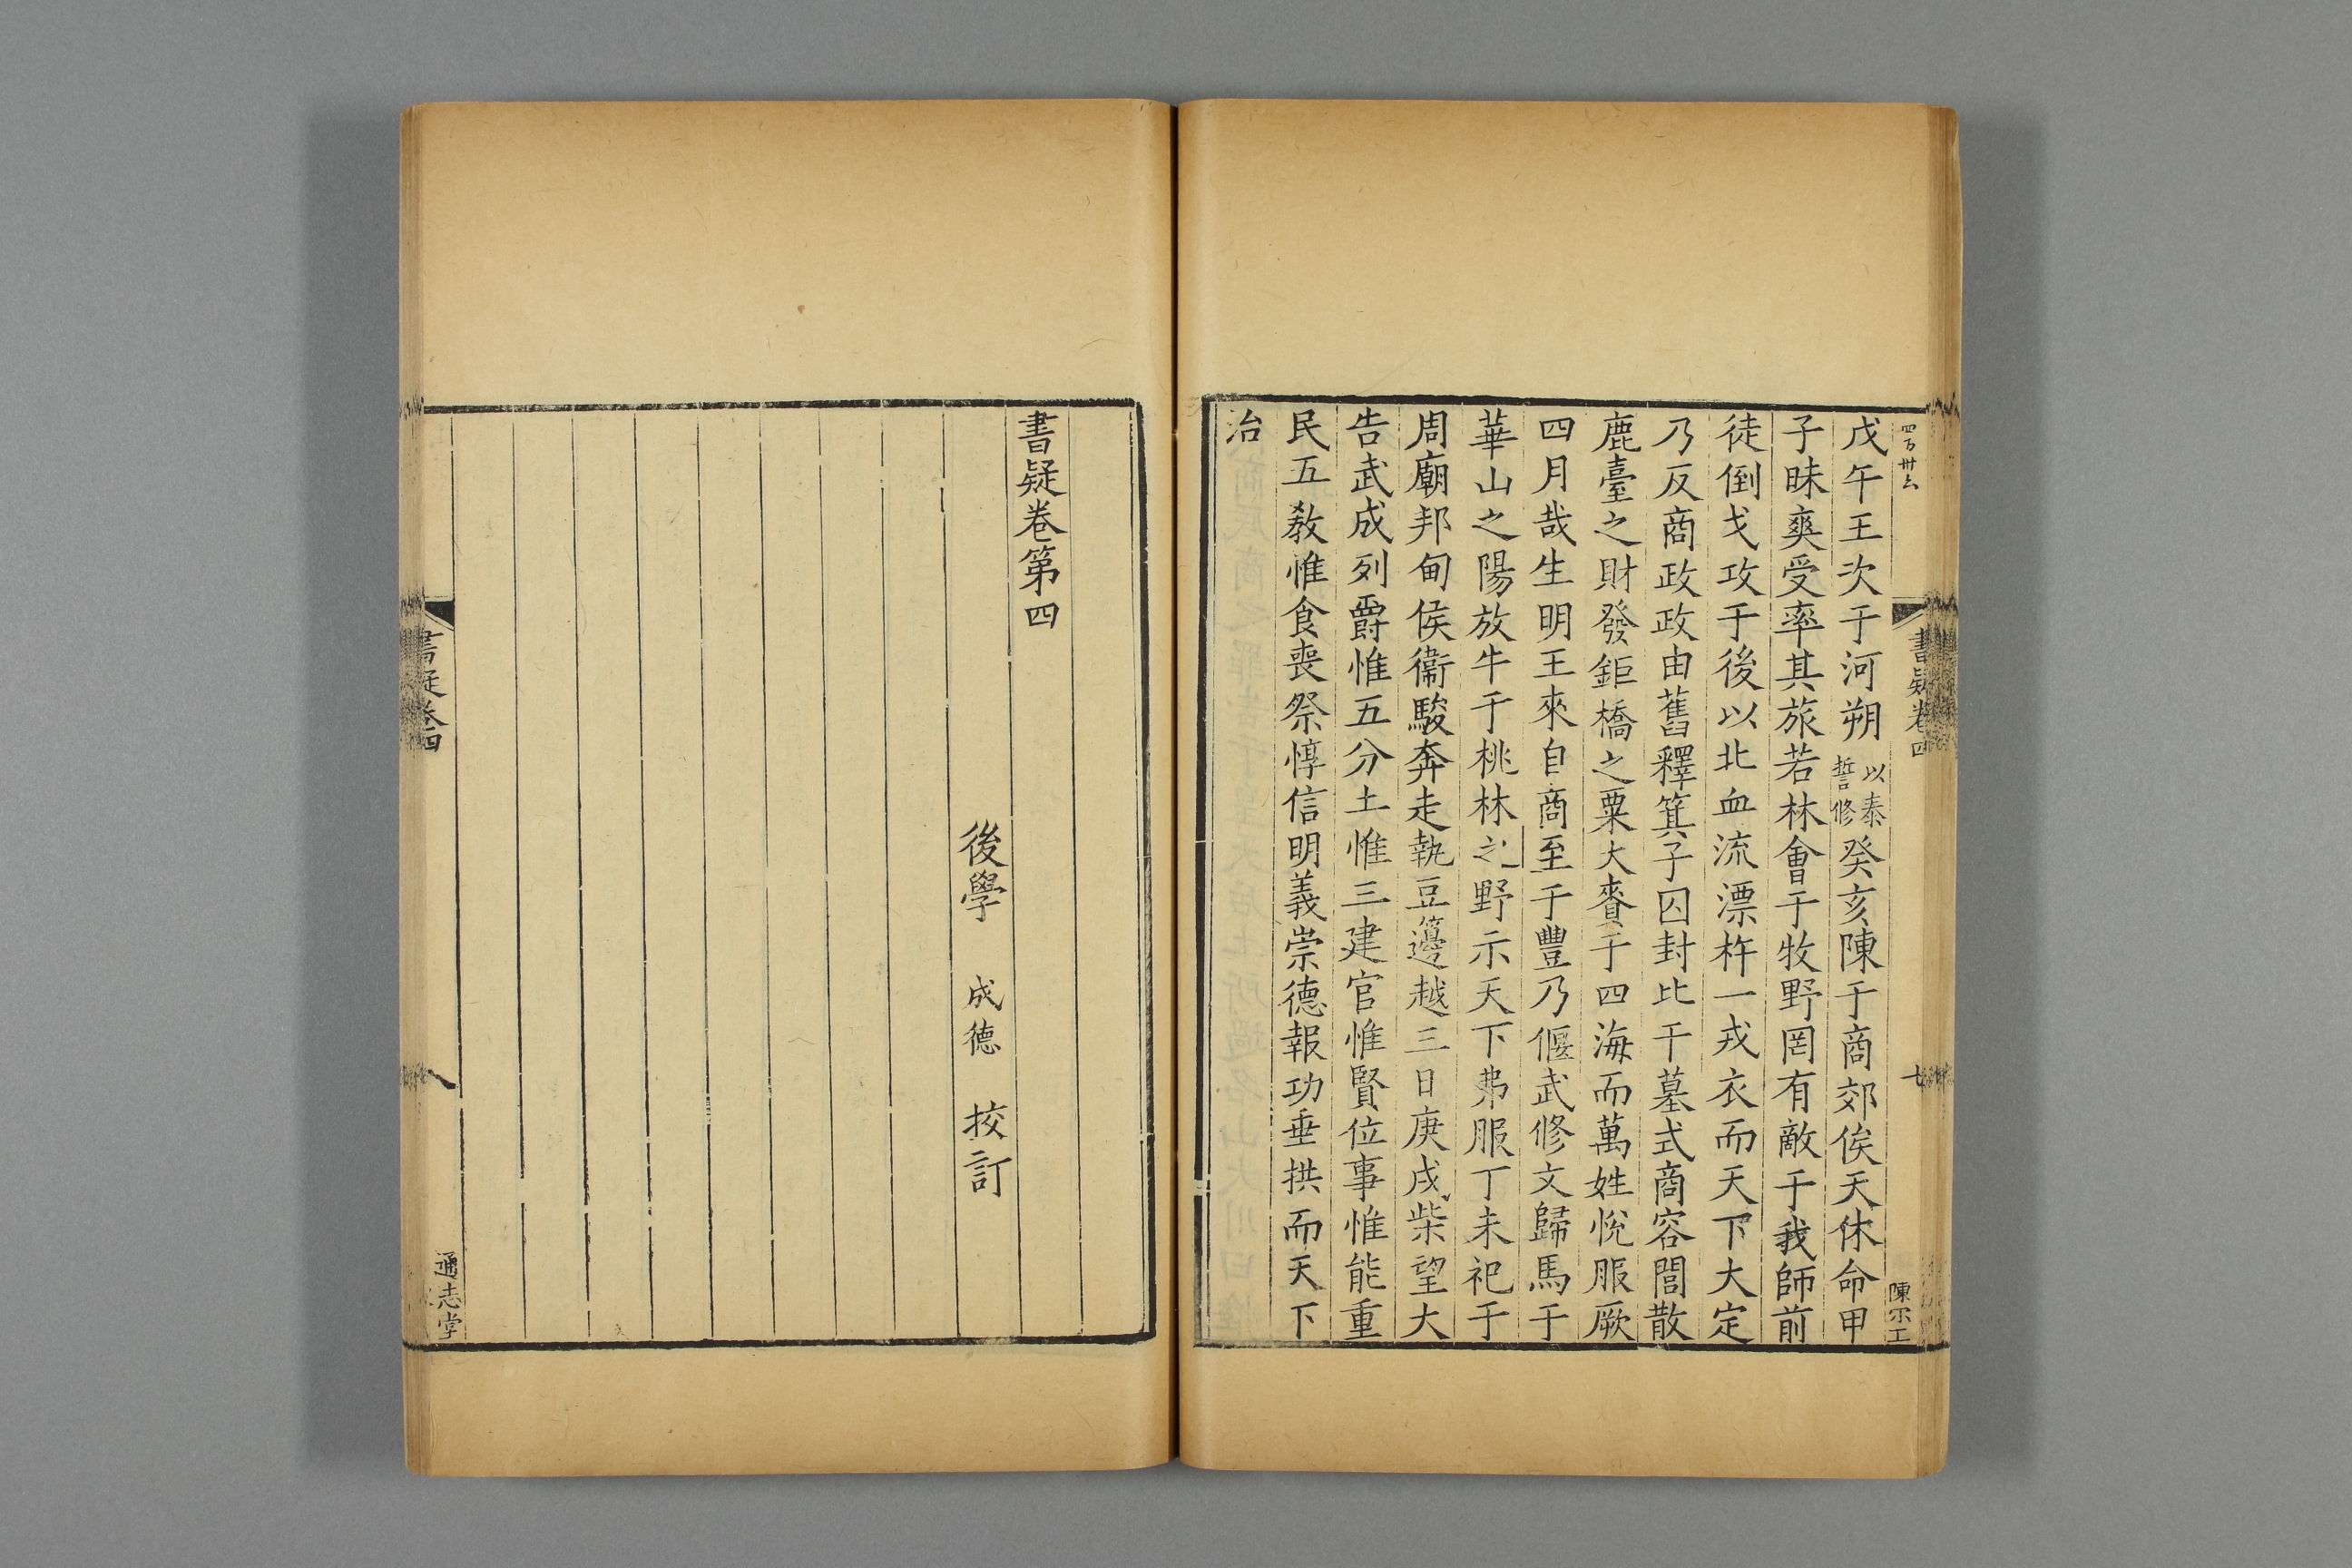 書疑卷四
七
戊午王次于河朔以泰誓修癸亥陳于商郊俟天休命甲
子昧爽受率其旅若林會于牧野罔有敵于我師前
徒倒戈攻于後以北血流漂杵一戎衣而天下大定
乃反商政政由舊釋箕子囚封比干墓式商容閭散
鹿臺之財發鉅橋之粟大賚于四海而萬姓悅服厥
四月哉生明王來自商至于豐乃偃武修文歸馬于
華山之陽放牛于桃林之野示天下弗服丁未祀于
周廟邦甸侯衞駿奔走執豆籩越三日庚戌柴望大
告武成列爵惟五分土惟三建官惟賢位事惟能重
民五敎惟食喪祭惇信明義崇德報功垂拱而天下
治
書疑卷第四
後學 成德 挍訂
書疑卷四
通志堂